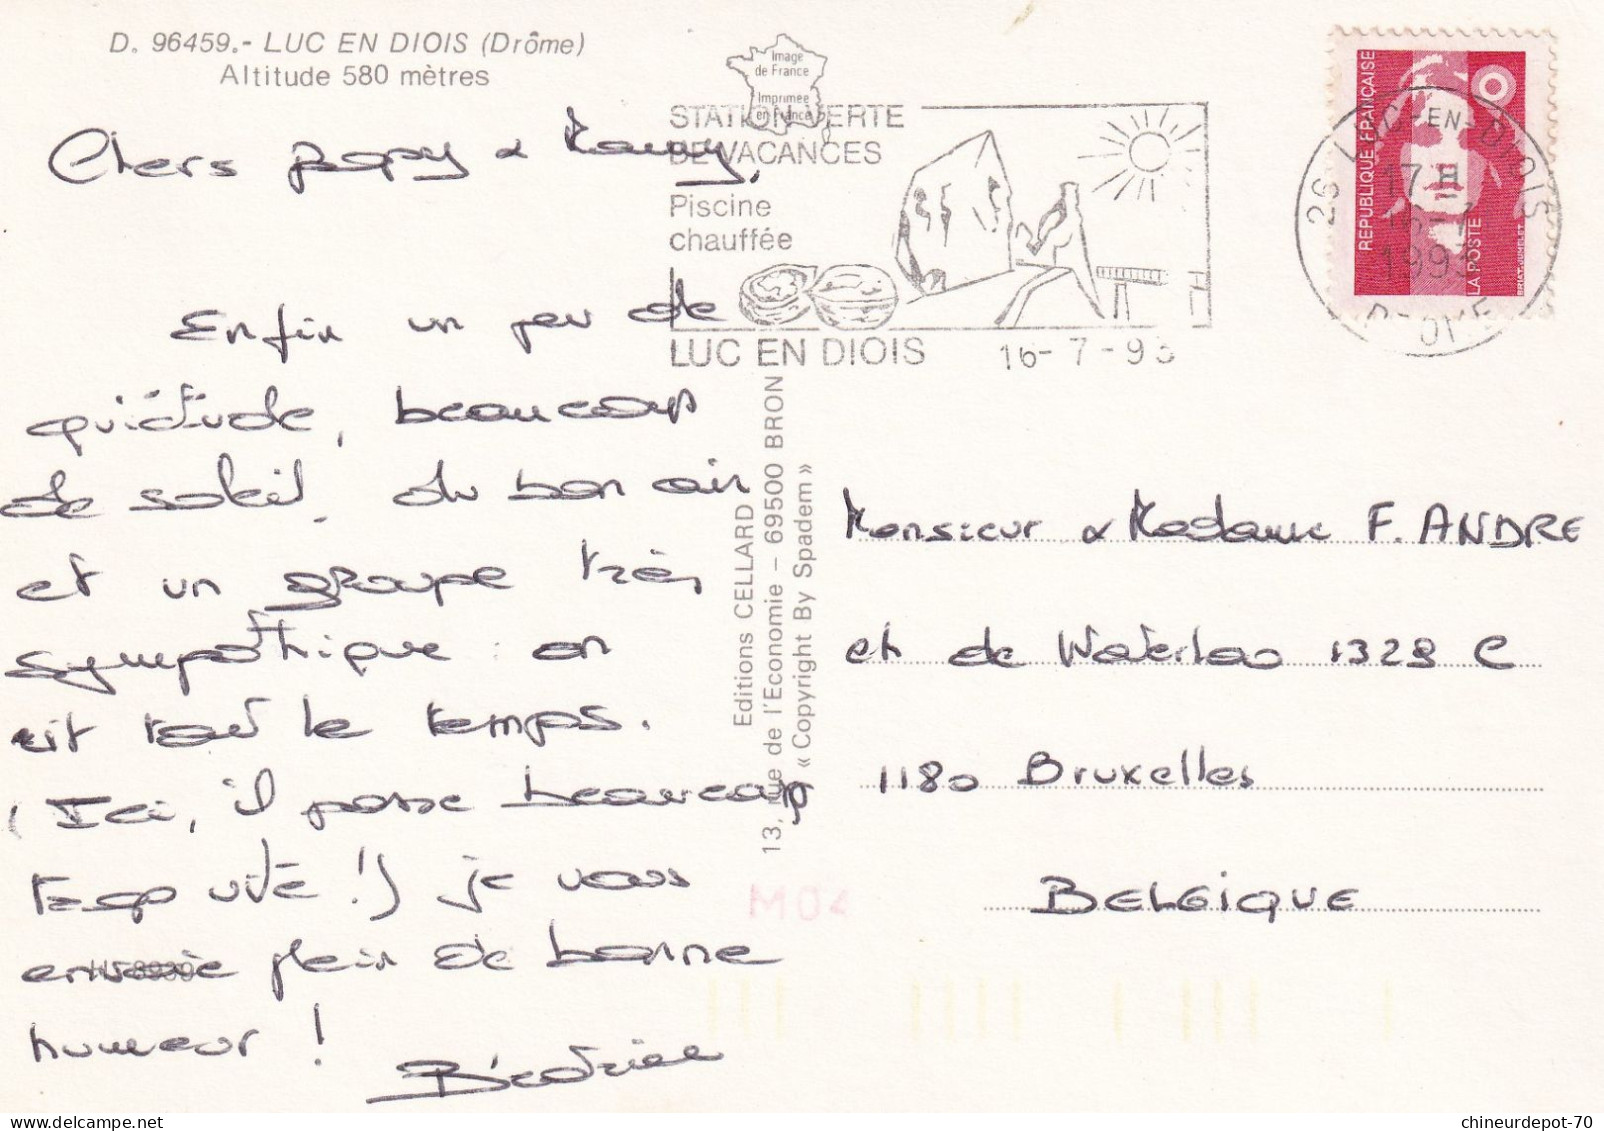 D. 96459.- LUC EN DIOIS (Drôme)
Altitude 580 mètres
Image
de France
Imprimée
en France
STATION VERTE
DE VACANCES
Piscine
chauffée
LUC EN DIOIS
16-7-93
26 LUC-EN-DIOIS
17H
16-7
1993
DROME
REPUBLIQUE FRANÇAISE
LA POSTE
BRIAT-JUMELET
Chers papy & Mamy,
Enfin un peu de
quiétude, beaucoup
de soleil, du bon air
et un groupe très
sympathique : on
rit tout le temps.
(Ici, il passe beaucoup
trop vite !) je vous
envoie plein de bonne
humeur !
Béatrice
Editions CELLARD
13, rue de l'Economie – 69500 BRON
« Copyright By Spadem »
Monsieur & Madame F. ANDRE
ch de Waterloo 1328 C
1180 Bruxelles
BELGIQUE
M04
chineurdepot-70